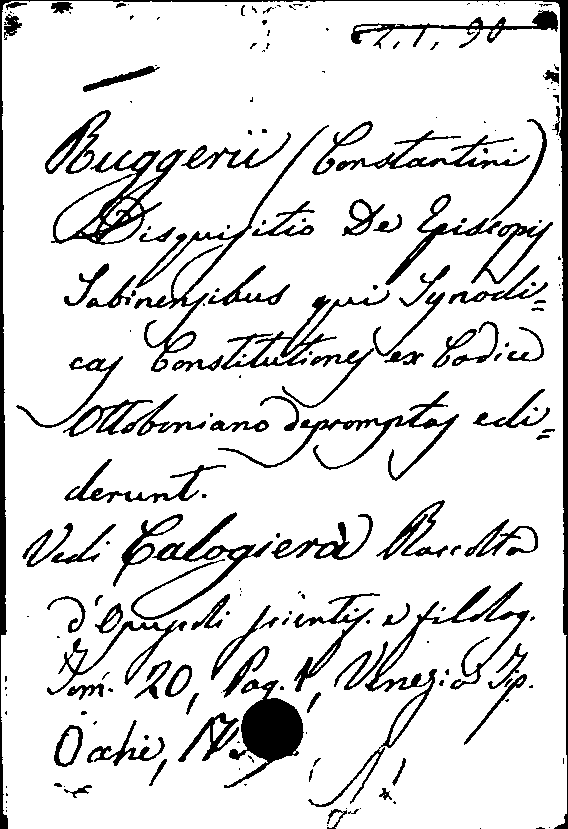 2.1.90
Ruggerii (Constantini)
Disquisitio De Episcopis
Sabinensibus qui Synodi=
cas Constitutiones ex Codice
Ottoboniano depromptas edi=
derunt.
Vedi Calogierà Raccolta
d'Opuscoli scientif. e filolog.
Tom. 20, Pag. 1, Venezia Tip.
Occhi, 17